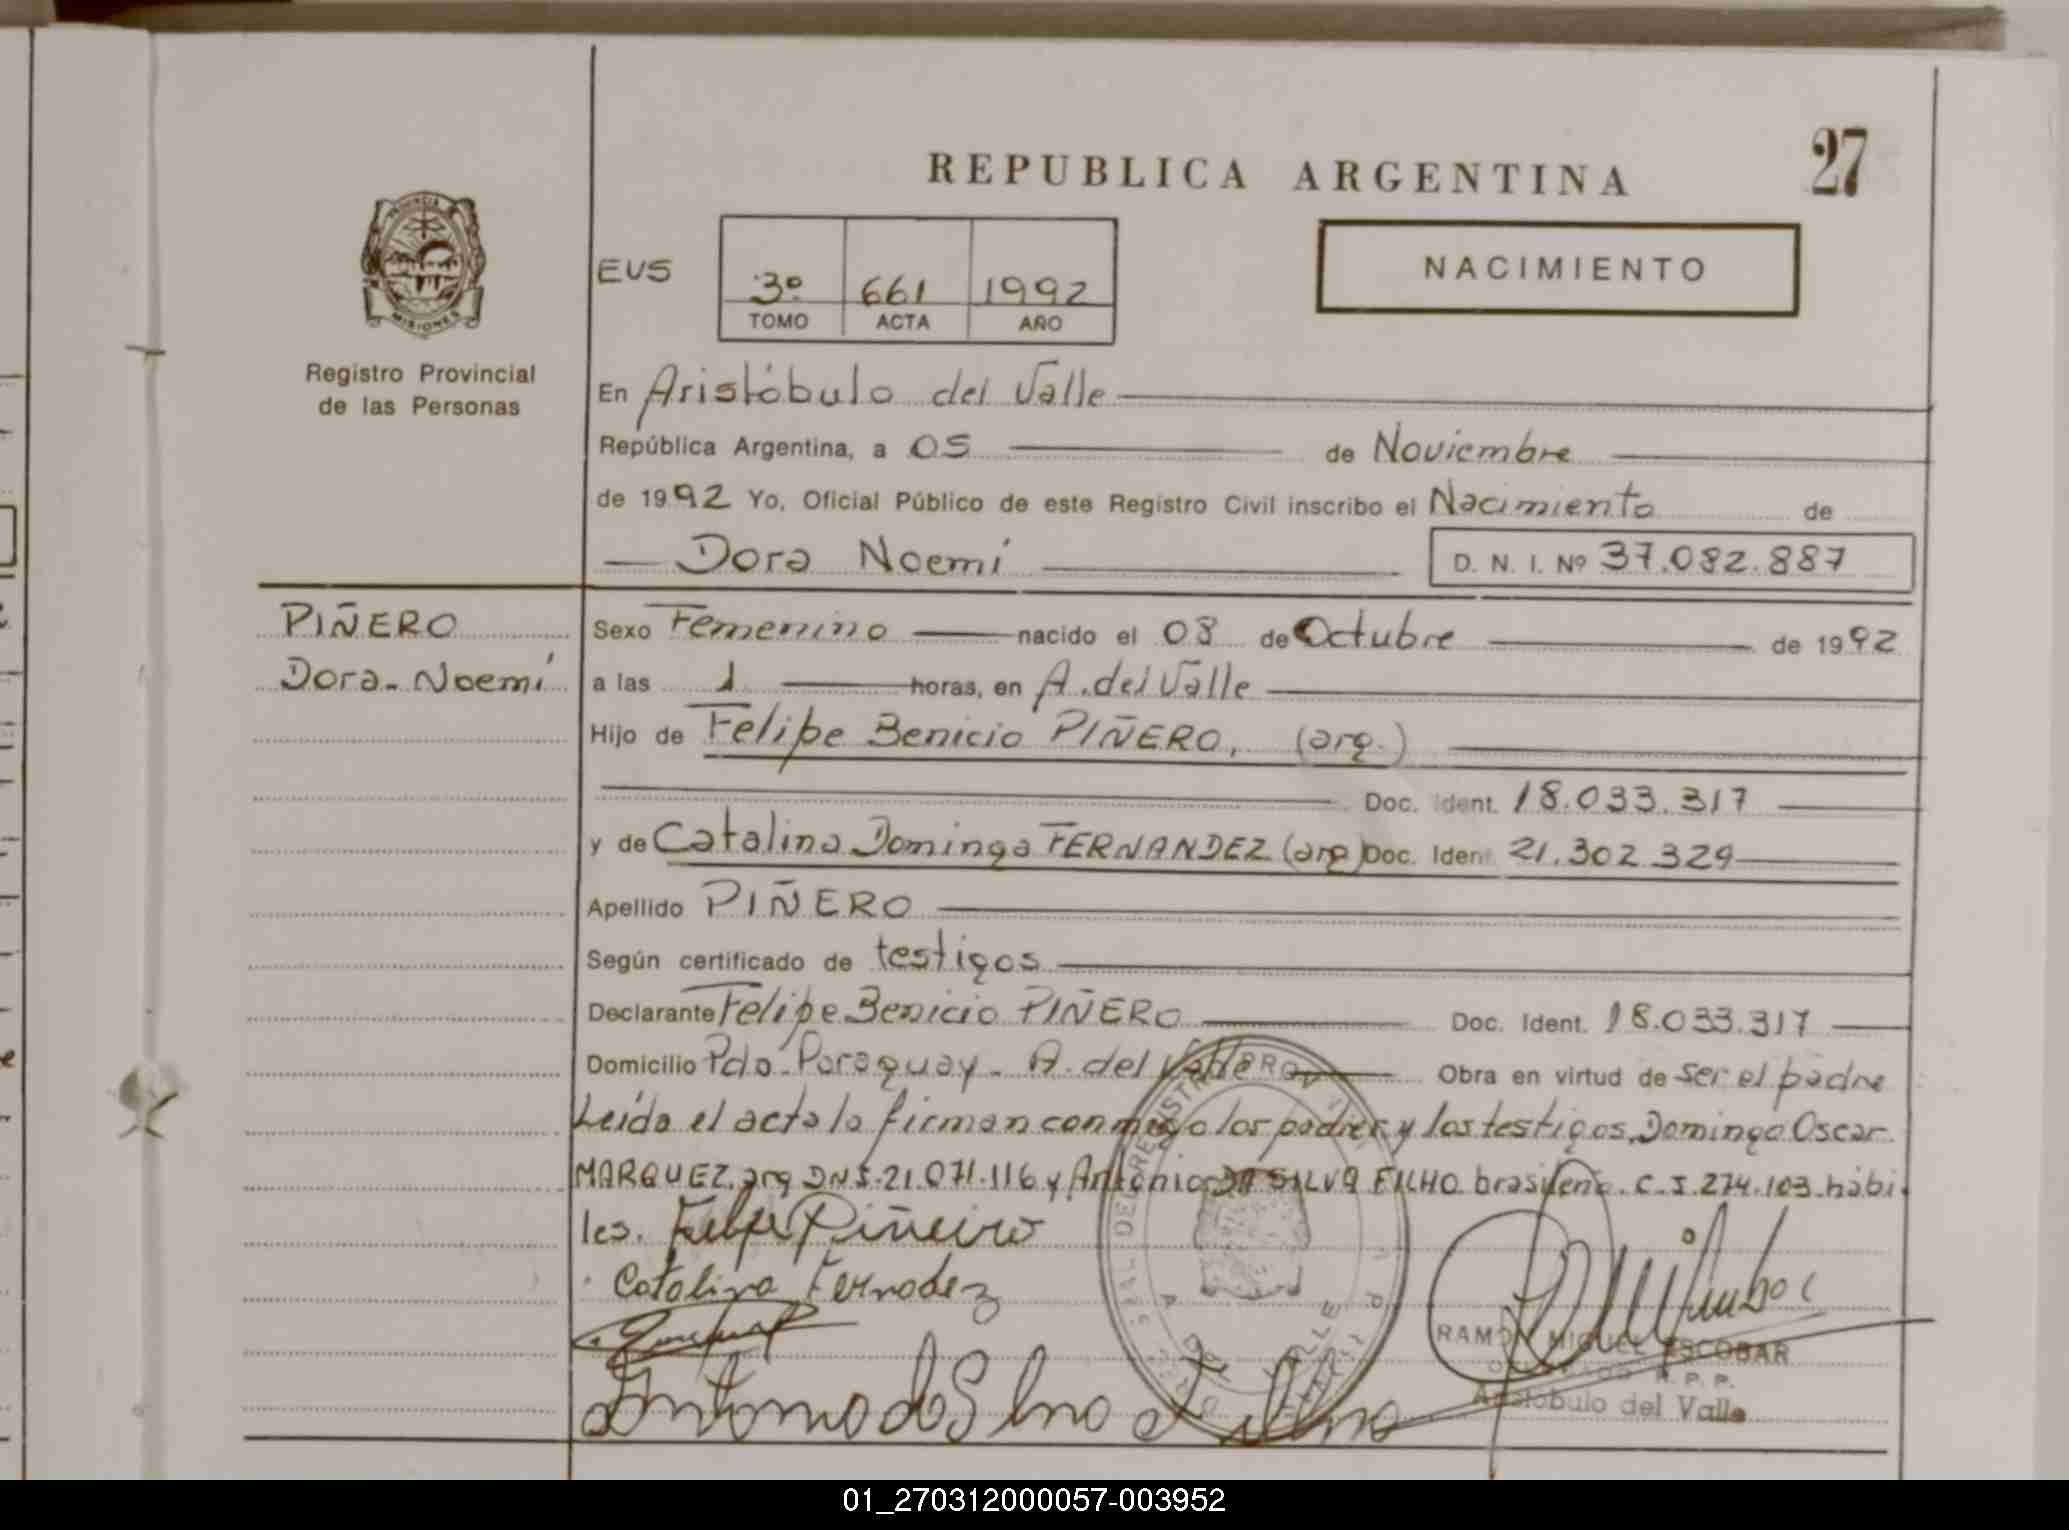 27
REPUBLICA ARGENTINA
PROVINCIA DE
MISIONES
Registro Provincial
de las Personas
NACIMIENTO
EUS
3º 661 1992
TOMO ACTA AÑO
En Aristóbulo del Valle
República Argentina, a 05 de Noviembre
de 1992 Yo, Oficial Público de este Registro Civil inscribo el Nacimiento de
Dora Noemí D. N. I. Nº 37.082.887
PIÑERO
Dora-Noemí
Sexo Femenino nacido el 08 de Octubre de 1992
a las 1 horas, en A. del Valle
Hijo de Felipe Benicio PIÑERO, (arg.)
Doc. Ident. 18.033.317
y de Catalina Dominga FERNANDEZ (arg) Doc. Ident. 21.302.329
Apellido PIÑERO
Según certificado de testigos
Declarante Felipe Benicio PIÑERO Doc. Ident. 18.033.317
Domicilio Pdo. Paraguay - A. del Valle Obra en virtud de ser el padre
Leída el acta la firman conmigo los padres y los testigos, Domingo Oscar
MARQUEZ, arg DNI-21.071.116 y Antonio DA SILVA FILHO brasileño. C.I. 274.103. hábi
les. Felipe Piñeiro
Catalina Fernadez
Antonio da Silva Filho
RAMON MIGUEL ESCOBAR
R. P. P.
Aristóbulo del Valle
01_270312000057-003952